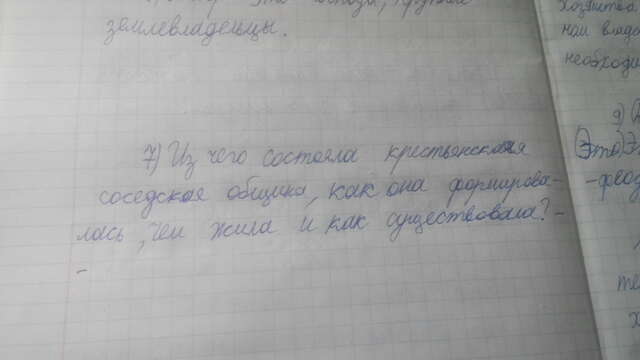 это
землевладельцы.
7) Из чего состояла крестьянская
соседская община, как она формирова-
лась, чем жила и как существовала? -
-
хозяйства
необходи
9)
(Это)
-феод